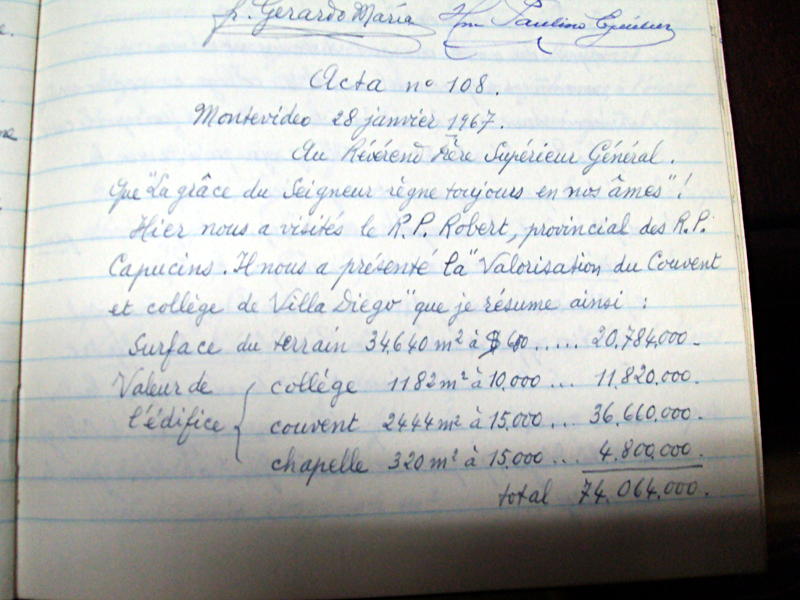 fr. Gerardo María Hno. Paulino
Acta nº 108.
Montevideo 28 janvier 1967.
Au Révérend Père Supérieur Général.
Que "La grâce du Seigneur règne toujours en nos âmes"!
Hier nous a visités le R.P. Robert, provincial des R.P.
Capucins. Il nous a présenté la "Valorisation du Couvent
et collège de Villa Diego" que je résume ainsi :
Surface du terrain 34,640 m² à $ 600..... 20,784,000.-
Valeur de collége 1182 m² à 10,000... 11,820.000.
l'édifice couvent 2444 m² à 15,000... 36,660,000.
chapelle 320 m² à 15,000... 4.800,000.
total 74.064,000.